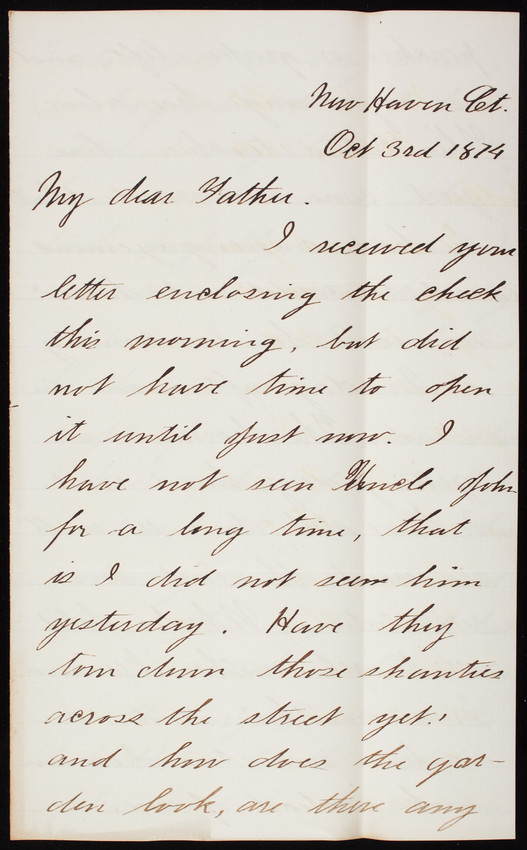 New Haven Ct.
Oct 3rd 1874
My dear Father.
I received your
letter enclosing the check
this morning, but did
not have time to open
it until just now. I
have not seen Uncle John
for a long time, that
is I did not seem him
yesterday. Have they
torn down those shanties
across the street yet!
and how does the gar-
den look, are there any